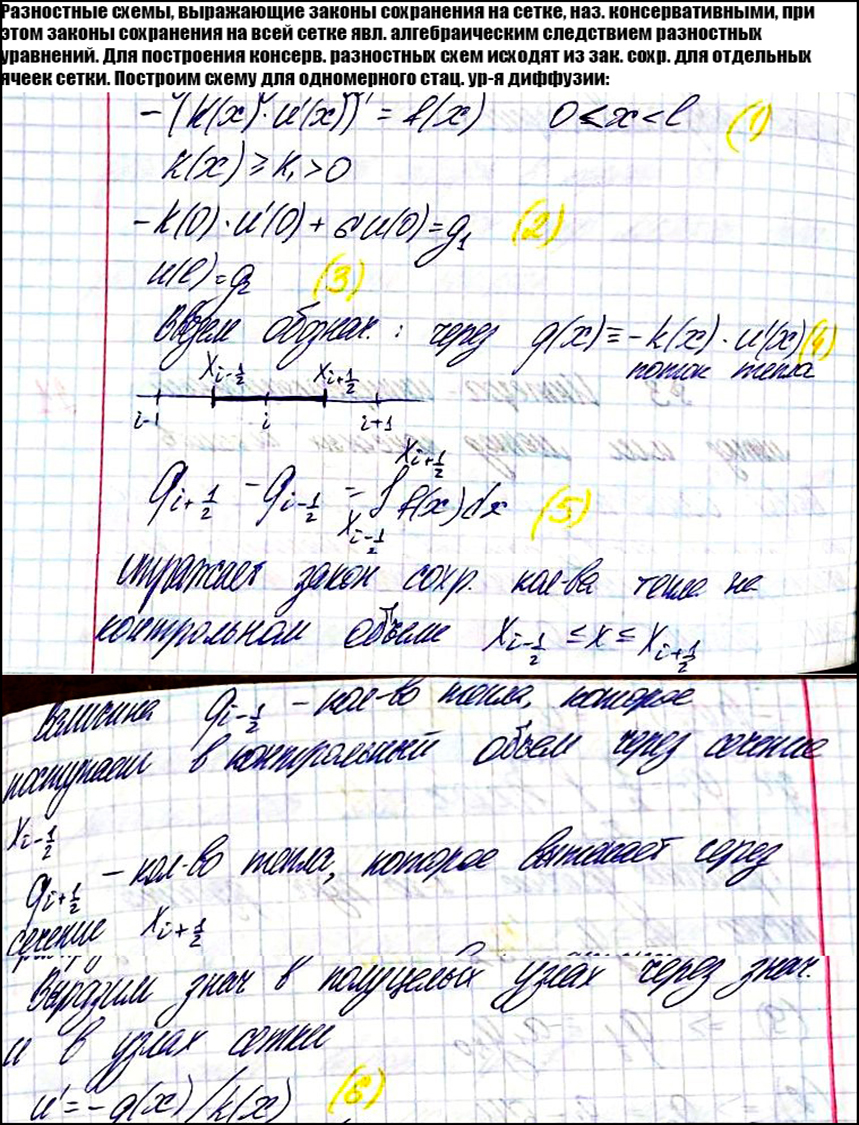 Разностные схемы, выражающие законы сохранения на сетке, наз. консервативными, при
этом законы сохранения на всей сетке явл. алгебраическим следствием разностных
уравнений. Для построения консерв. разностных схем исходят из зак. сохр. для отдельных
ячеек сетки. Построим схему для одномерного стац. ур-я диффузии:
-(k(x)·u'(x))' = f(x) 0≤x<l (1)
k(x) ≥ k₁ > 0
-k(0)·u'(0) + σu(0) = g₁ (2)
u(l) = g₂ (3)
Введем обознач.: через q(x) ≡ -k(x)·u'(x) (4)
поток тепла
x_{i-1/2} x_{i+1/2}
i-1 i i+1
q_{i+1/2} - q_{i-1/2} = ∫_{x_{i-1/2}}^{x_{i+1/2}} f(x)dx (5)
выражает закон сохр. кол-ва тепла на
контрольном объеме x_{i-1/2} ≤ x ≤ x_{i+1/2}
Величина q_{i-1/2} - кол-во тепла, которое
поступает в контрольный объем через сечение
x_{i-1/2}
q_{i+1/2} - кол-во тепла, которое вытекает через
сечение x_{i+1/2}
Выразим знач в полуцелых узлах через знач.
u в узлах сетки
u' = -q(x)/k(x) (6)